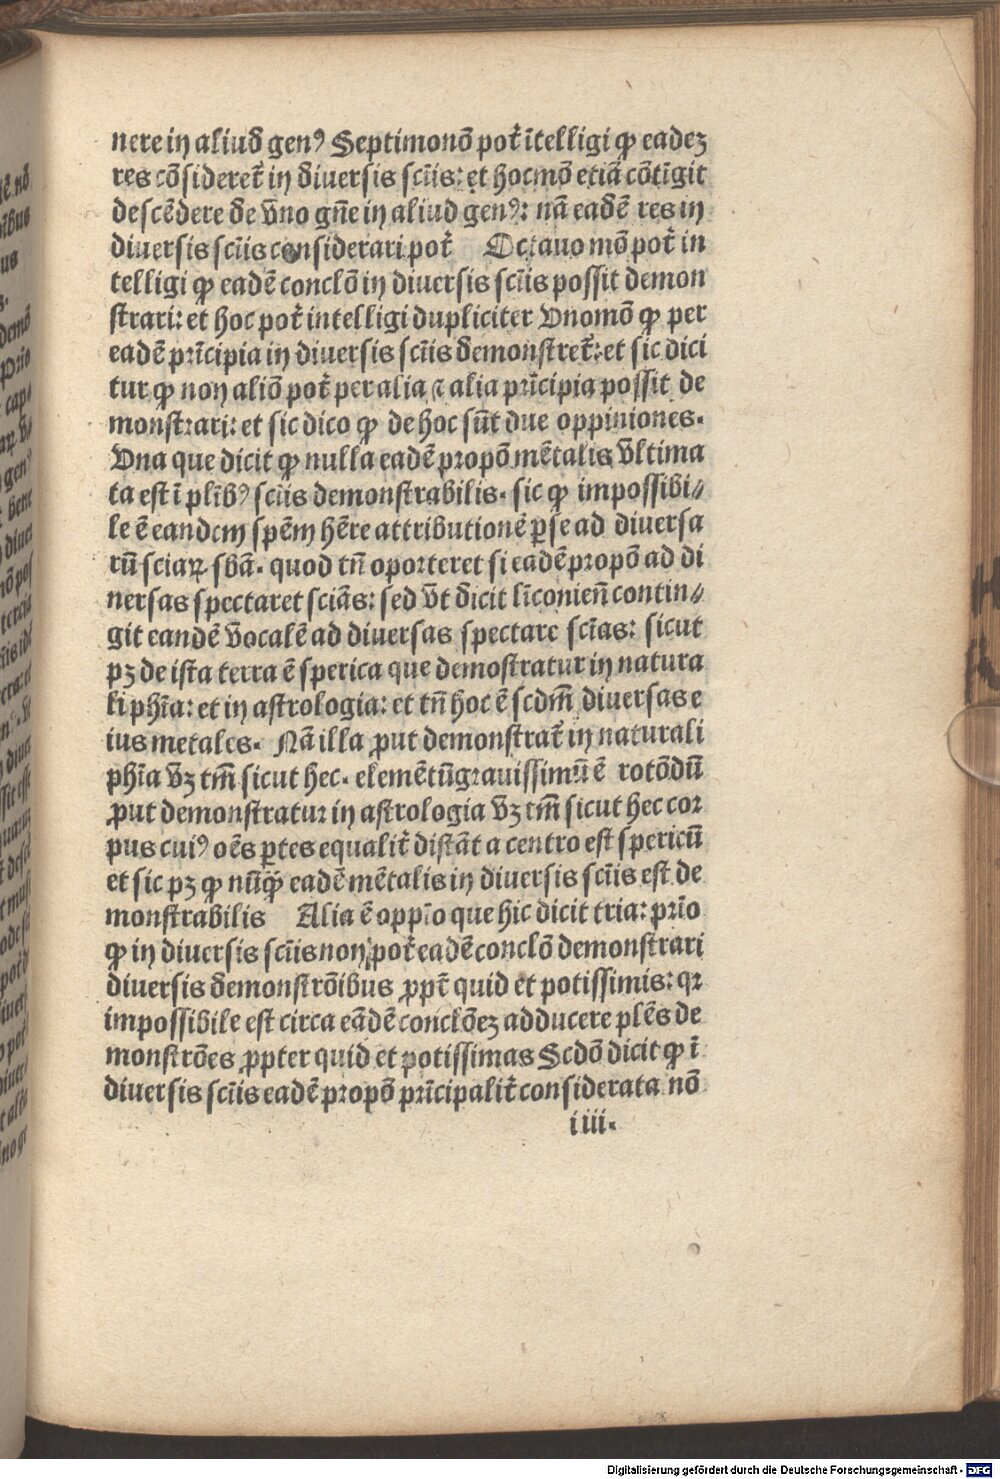 nere in aliud genꝰ Septimo nō pot̄ ītelligi ꝙ eadeꝫ
res cōsideret̄ in diuersis scīis: et hoc mō etiā cōtīgit
descēdere de vno gn̄e in aliud genꝰ: nā eadē res in
diuersis scīis considerari pot̄ Octauo mō pot̄ in
telligi ꝙ eadē conclō in diuersis scīis possit demon
strari: et hoc pot̄ intelligi dupliciter Vno mō ꝙ per
eadē prīcipia in diuersis scīis demonstret̄: et sic dici
tur ꝙ non aliō pot̄ per alia ⁊ alia prīcipia possit de
monstrari: et sic dico ꝙ de hoc sūt due oppiniones.
Vna que dicit ꝙ nulla eadē propō mētalis vltima
ta est ī plībꝰ scīis demonstrabilis. sic ꝙ impossibi⸗
le ē eandem spēm hēre attributionē ꝑ se ad diuersa
rū sciaꝝ sbā. quod tn̄ oporteret si eadē propō ad di
nersas spectaret sciās: sed vt dicit līconien̄ contin⸗
git eandē vocalē ad diuersas spectare scīas: sicut
pꝫ de ista terra ē sperica que demostratur in natura
li phīa: et in astrologia: et tn̄ hoc ē scdm̄ diuersas e
ius metales. Nā illa ꝓut demonstrat̄ in naturali
phīa vꝫ tm̄ sicut hec. elemētū grauissimū ē rotōdū
ꝓut demonstratur in astrologia vꝫ tm̄ sicut hec cor
pus cuiꝰ oēs ꝑtes equalit̄ distāt a centro est spericū
et sic pꝫ ꝙ nūꝙ̄ eadē mētalis in diuersis scīis est de
monstrabilis Alia ē oppīo que hic dicit tria: prīo
ꝙ in diuersis scīis non pot̄ eadē conclō demonstrari
diuersis demonstrōibus ꝓpt̄ quid et potissimis: qꝛ
impossibile est circa eādē conclōeꝫ adducere plēs de
monstrōes ꝓpter quid et potissimas Scdō dicit ꝙ ī
diuersis scīis eadē propō prīcipalit̄ considerata nō
iiii.
Digitalisierung gefördert durch die Deutsche Forschungsgemeinschaft - DFG